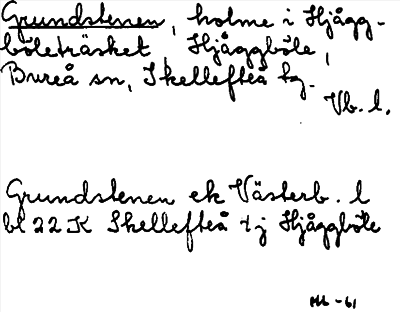 Grundstenen, holme i Hjågg-
böleträsket, Hjåggböle,
Bureå sn, Skellefteå kg.
Vb. l.
Grundstenen ek Västerb. l
bl 22 K Skellefteå tj Hjåggböle
-61